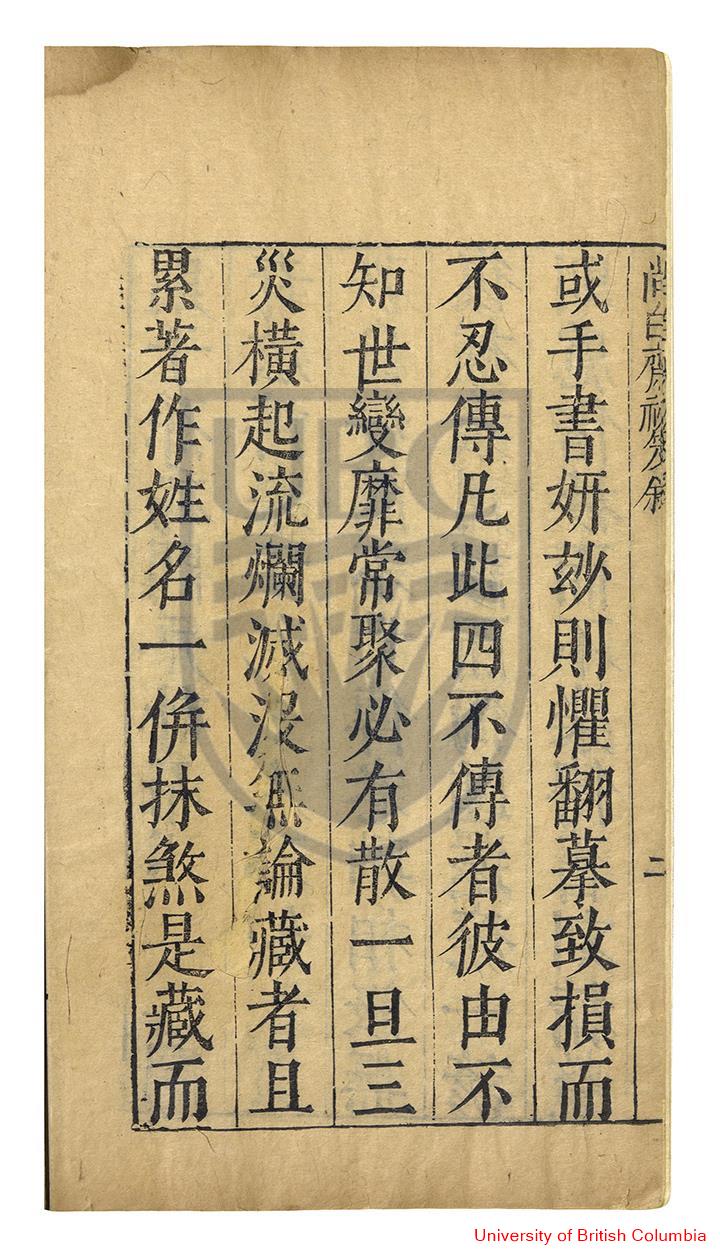 尚白齋祕笈敘
二
或手書妍玅則懼翻摹致損而
不忍傳凡此四不傳者彼由不
知世變靡常聚必有散一旦三
災橫起流爛滅沒無論藏者且
累著作姓名一併抹煞是藏而
UBC
University of British Columbia